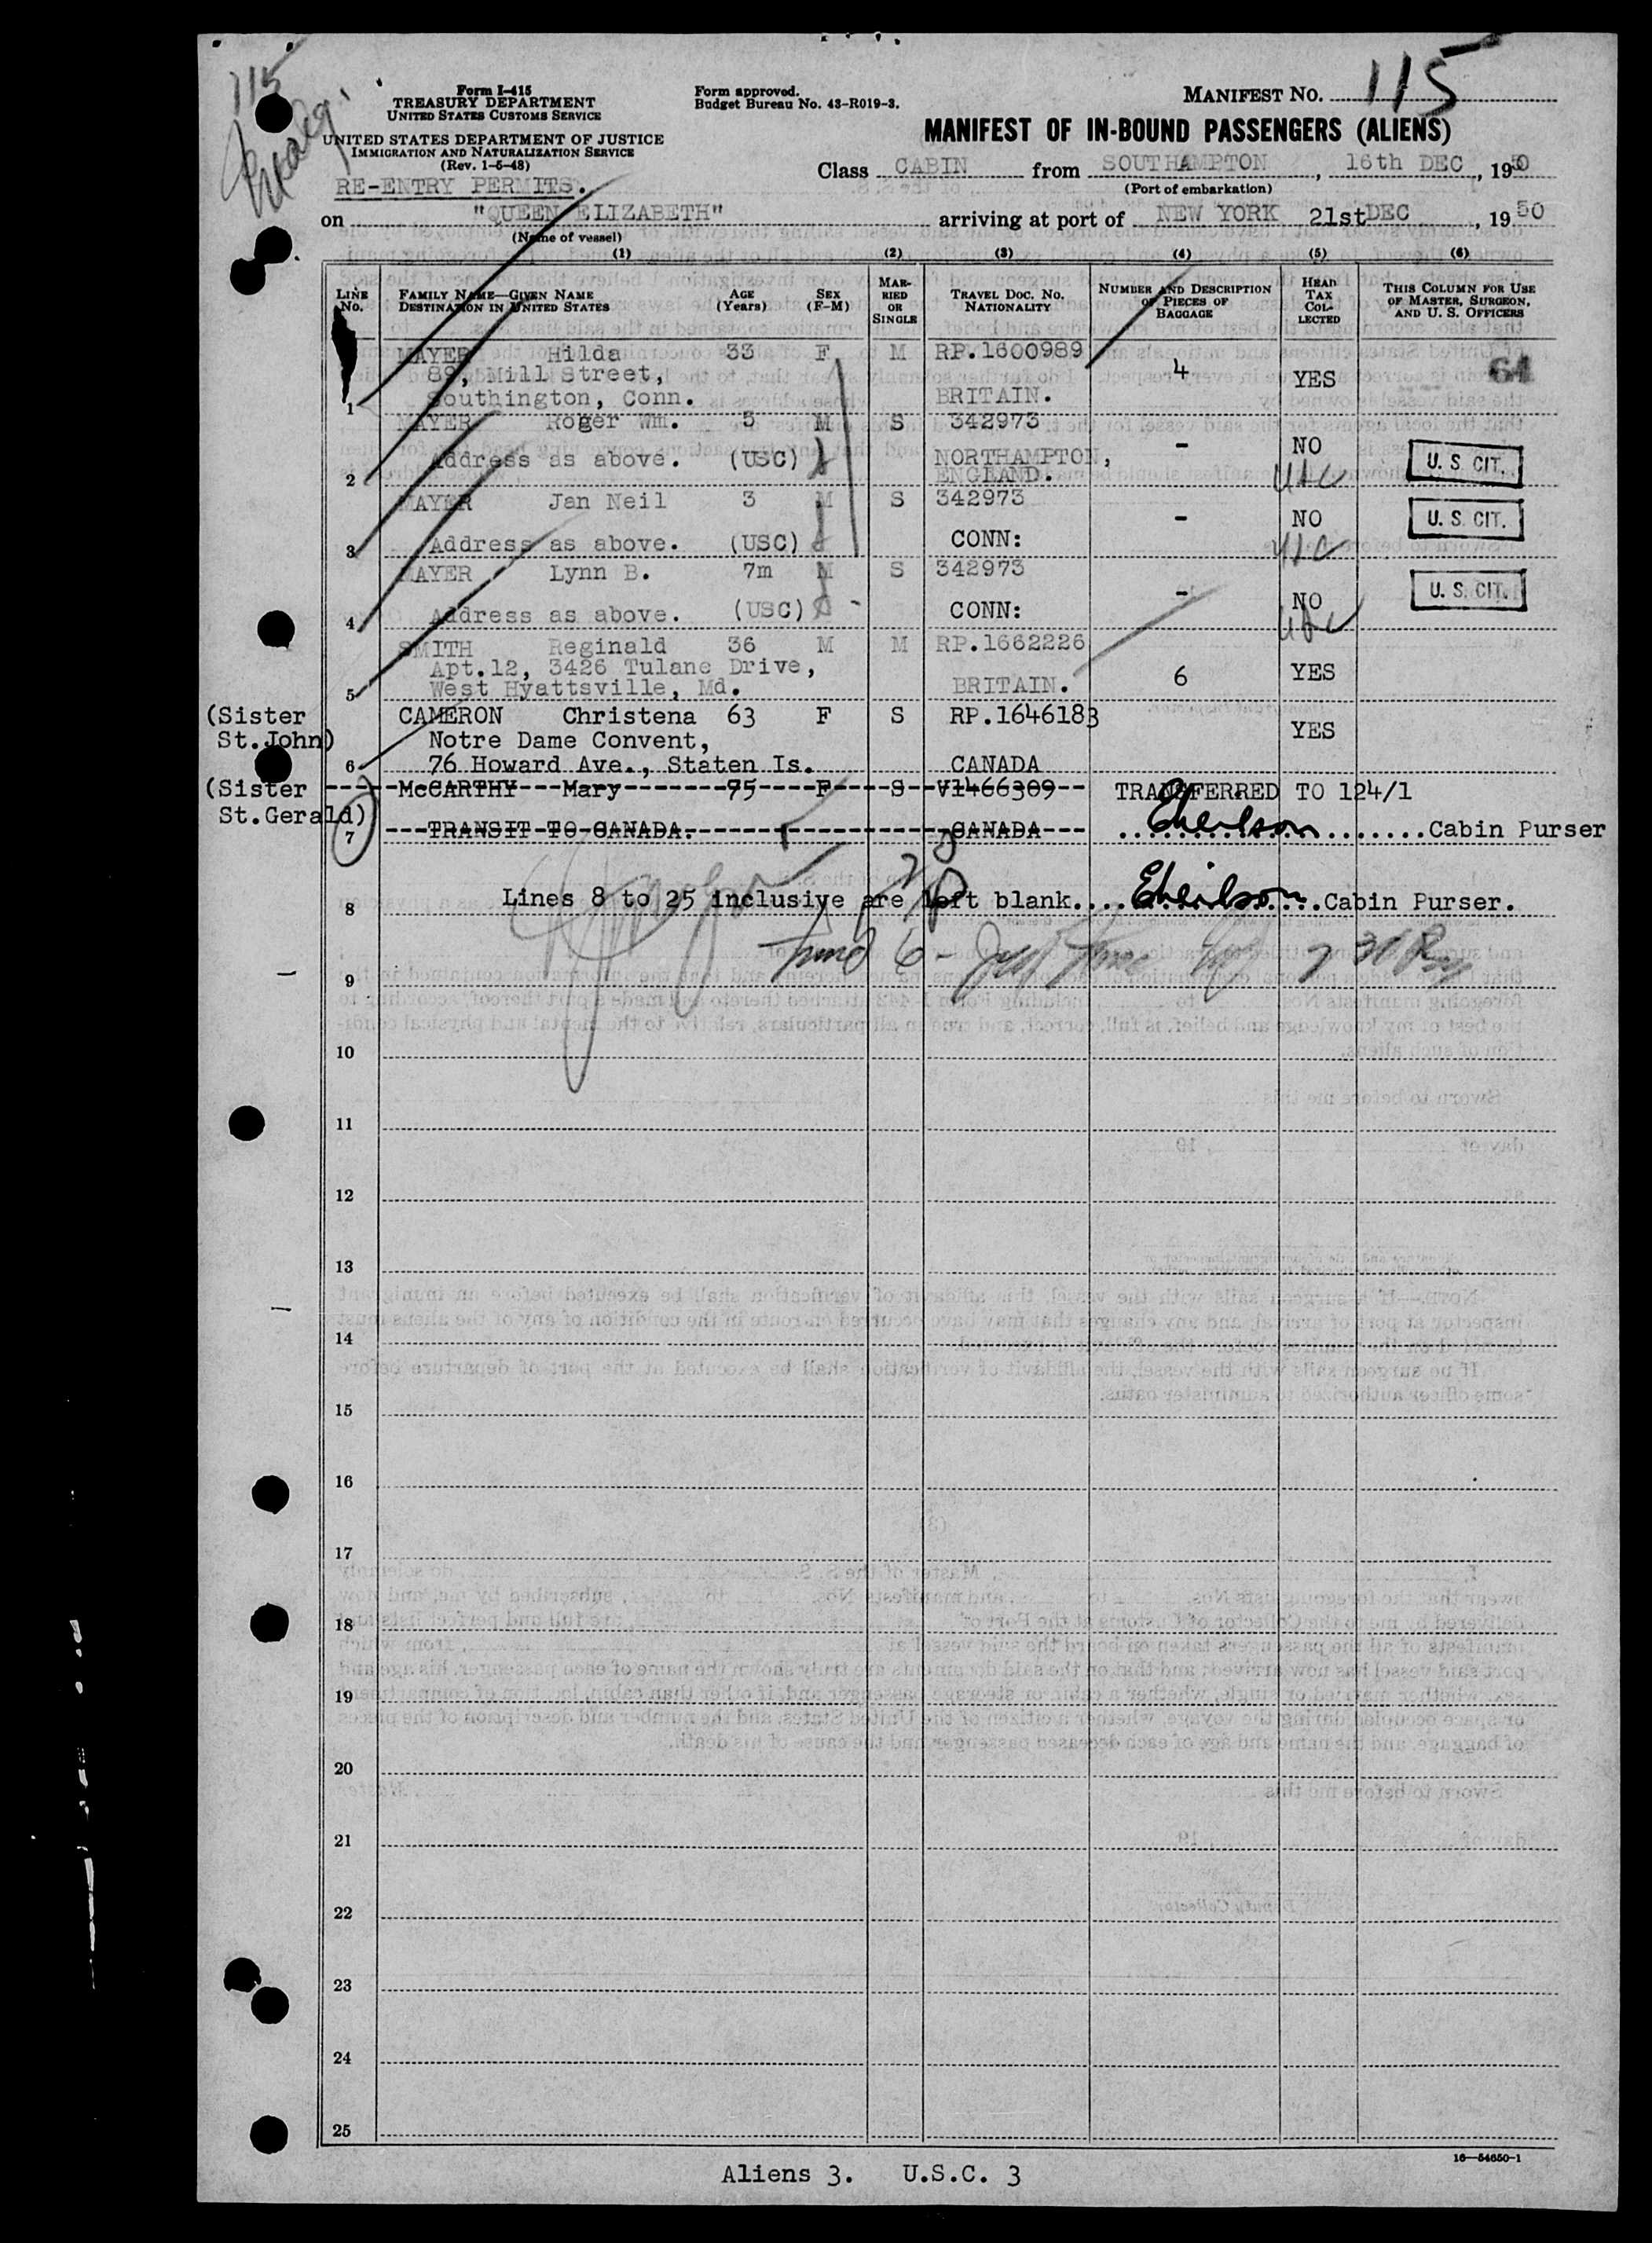 115
Form I-415
TREASURY DEPARTMENT
UNITED STATES CUSTOMS SERVICE
UNITED STATES DEPARTMENT OF JUSTICE
IMMIGRATION AND NATURALIZATION SERVICE
(Rev. 1-5-48)
Form approved.
Budget Bureau No. 43-R019-3.
MANIFEST NO. 115
MANIFEST OF IN-BOUND PASSENGERS (ALIENS)
Class CABIN from SOUTHAMPTON, 16th DEC, 1950
(Port of embarkation)
RE-ENTRY PERMITS.
on "QUEEN ELIZABETH" arriving at port of NEW YORK 21st DEC, 1950
(Name of vessel)
(1) (2) (3) (4) (5) (6)
LINE NO. FAMILY NAME—GIVEN NAME DESTINATION IN UNITED STATES AGE (Years) SEX (F-M) MARRIED OR SINGLE TRAVEL DOC. NO. NATIONALITY NUMBER AND DESCRIPTION OF PIECES OF BAGGAGE HEAD TAX COLLECTED THIS COLUMN FOR USE OF MASTER, SURGEON, AND U. S. OFFICERS
MAYER Hilda 33 F M RP.1600989
89, Mill Street, 4 YES 64
1 Southington, Conn. BRITAIN.
MAYER Roger Wm. 5 M S 342973
- NO
Address as above. (USC) NORTHAMPTON, U. S. CIT.
2 ENGLAND.
MAYER Jan Neil 3 M S 342973
- NO U. S. CIT.
3 Address as above. (USC) CONN:
MAYER Lynn B. 7m M S 342973
- NO U. S. CIT.
4 Address as above. (USC) CONN:
SMITH Reginald 36 M M RP.1662226
Apt.12, 3426 Tulane Drive, 6 YES
5 West Hyattsville, Md. BRITAIN.
(Sister CAMERON Christena 63 F S RP.1646183
St.John) Notre Dame Convent, YES
6 76 Howard Ave., Staten Is. CANADA
(Sister McCARTHY Mary 75 F S V1466309 TRANSFERRED TO 124/1
St.Gerald) TRANSIT TO CANADA. CANADA Cabin Purser
7
8 Lines 8 to 25 inclusive are left blank. Cabin Purser.
9
10
11
12
13
14
15
16
17
18
19
20
21
22
23
24
25
16—54650-1
Aliens 3. U.S.C. 3